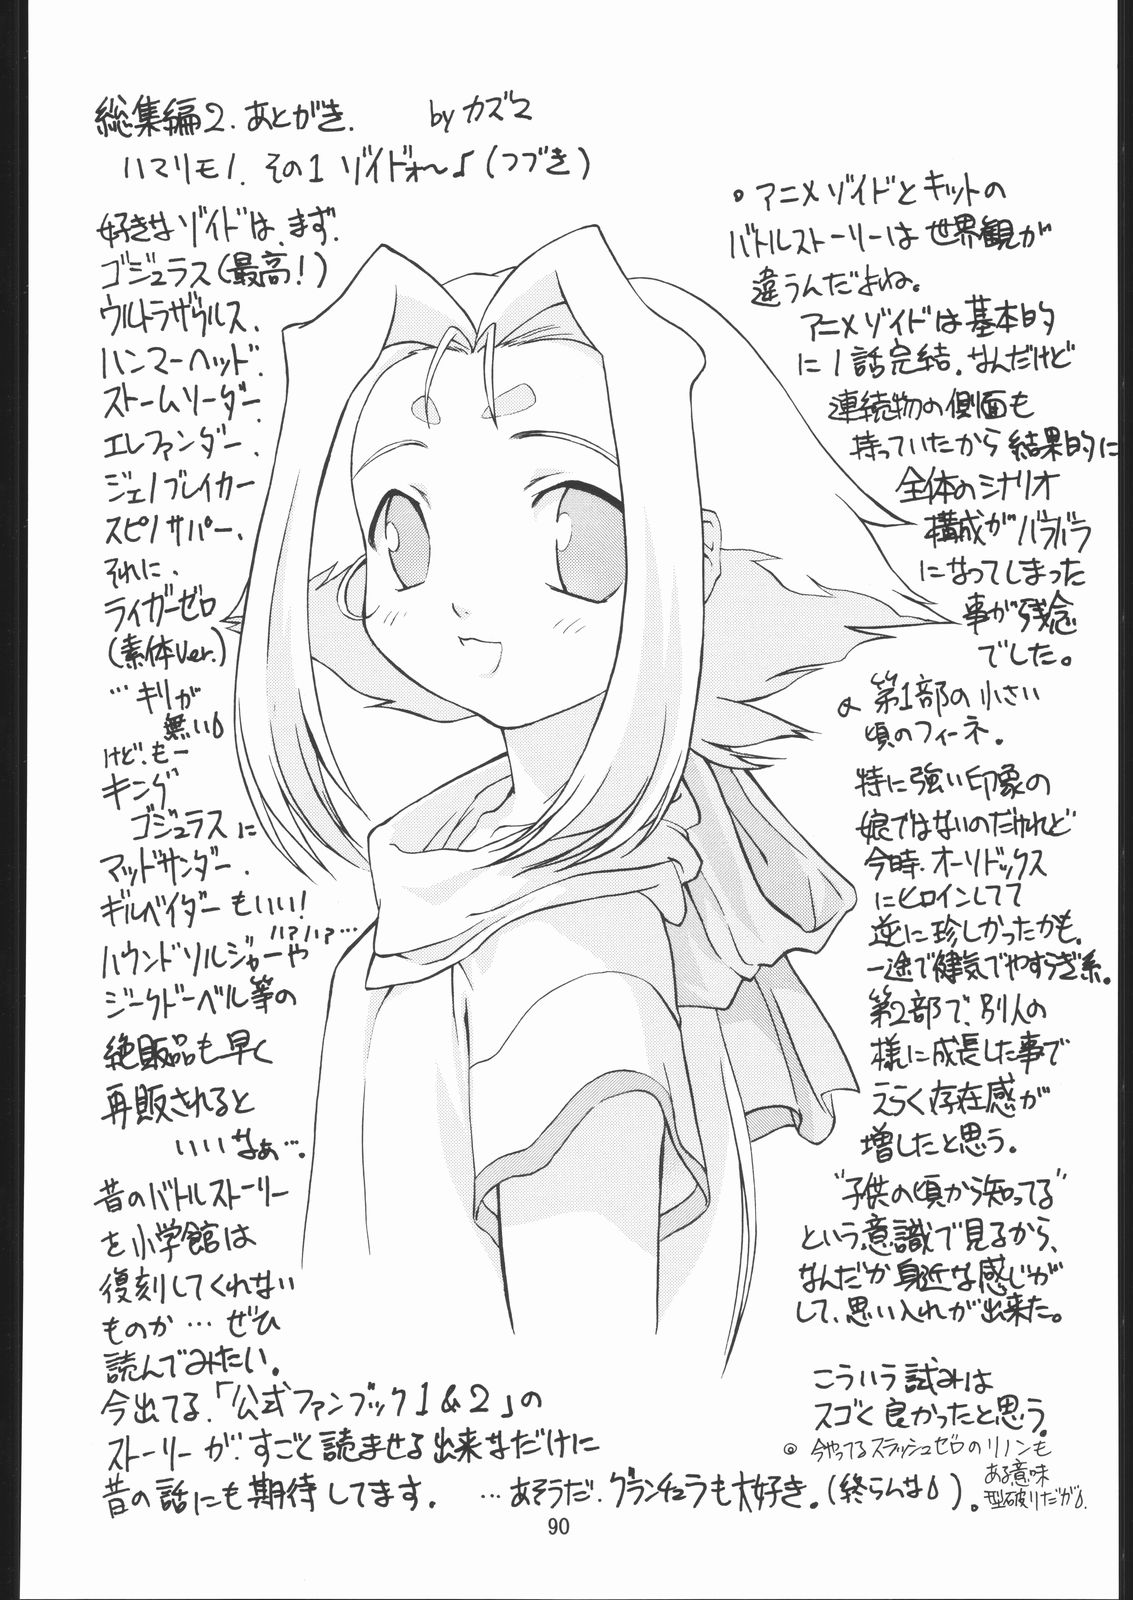 総集編2. あとがき. by カズマ
ハマリモノ. その1 ゾイドォ〜♪(つづき)
好きなゾイドは、まず.
ゴジュラス(最高!)
ウルトラザウルス.
ハンマーヘッド.
ストームソーダー.
エレファンダー.
ジェノブレイカー
スピノサパー.
それに.
ライガーゼロ
(素体Ver.)
…キリが
無い
けど、もー
キング
ゴジュラスに
マッドサンダー.
ギルベイダーもいい!
ハァハァ…
ハウンドソルジャーや
ジークドーベル等の
絶販品も早く
再販されると
いいなぁ….
昔のバトルストーリー
を小学館は
復刻してくれない
ものか…ぜひ
読んでみたい。
今出てる.「公式ファンブック1&2」の
ストーリーが.すごと読ませる出来なだけに
昔の話にも期待してます. …あそうだ.グランチュラも大好き.(終らんな).
。アニメゾイドとキットの
バトルストーリーは世界観が
違うんだよね。
アニメゾイドは基本的
に1話完結.なんだけど
連続物の側面も
持っていたから結果的に
全体のシナリオ
構成がバラバラ
になってしまった
事が残念
でした。
第1部の小さい
頃のフィーネ.
特に強い印象の
娘ではないのだけれど
今時.オーソドックス
にヒロインしてて
逆に珍しかったかも.
一途で健気でやすらぎ系.
第2部で、別人の
様に成長した事で
えらく存在感が
増したと思う。
"子供の頃から知ってる"
という意識で見るから、
なんだか身近な感じが
して、思い入れが出来た。
こういう試みは
スゴく良かったと思う。
◎今やってるスラッシュゼロのリノンも
ある意味
型破りだが.
90